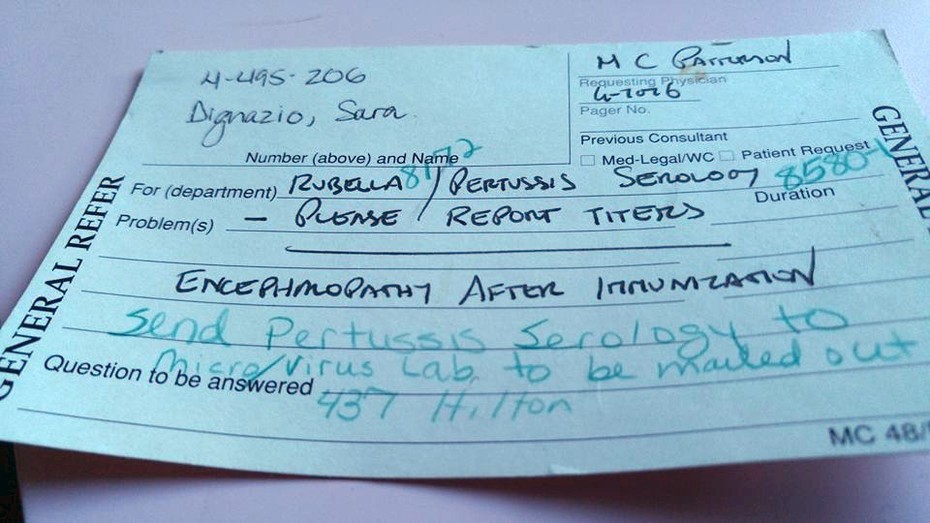 4-495-206
Dignazio, Sara
Number (above) and Name
M C Patterson
Requesting Physician
4-7026
Pager No.
Previous Consultant
Med-Legal/WC Patient Request
GENERAL REFER
GENERAL
For (department) RUBELLA / PERTUSSIS SEROLOGY
8172
8580
Duration
Problem(s) - PLEASE REPORT TITERS
ENCEPHALOPATHY AFTER IMMUNIZATION
Send Pertussis Serology to
Micro/Virus Lab, to be mailed out
Question to be answered
437 Hilton
MC 48/